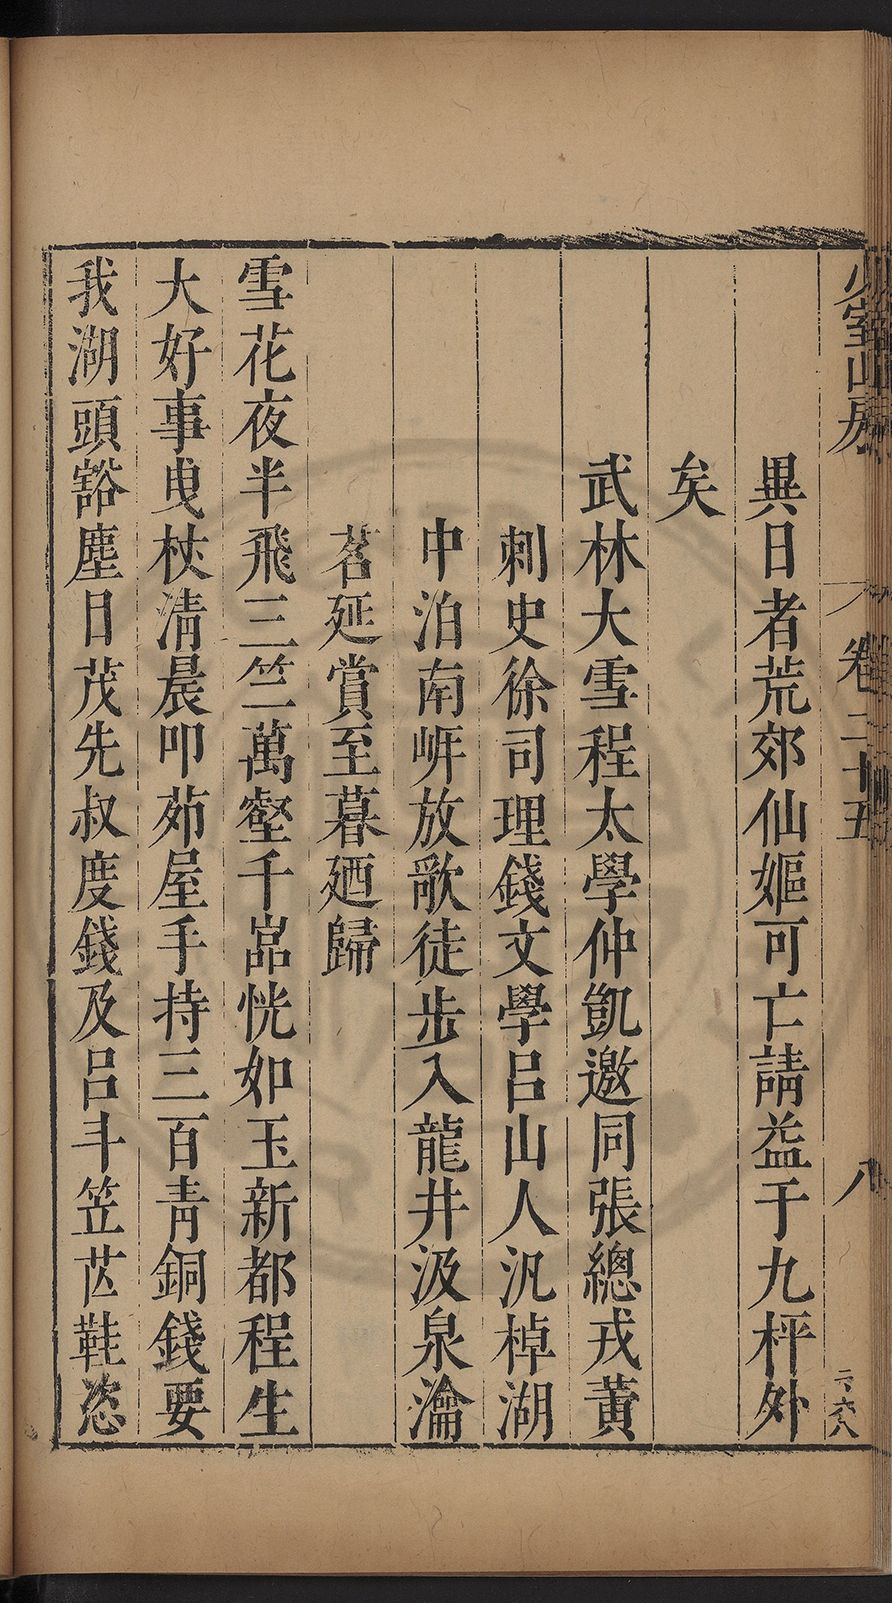 少室山房 卷二十五 八 二、六八
異日者荒郊仙嫗可亡請益于九枰外
矣
武林大雪程太學仲凱邀同張總戎黄
刺史徐司理錢文學吕山人汎棹湖
中泊南㟁放歌徒步入龍井汲泉瀹
茗延賞至暮廼歸
雪花夜半飛三竺萬壑千嵓恍如玉新都程生
大好事曳杖清晨叩茆屋手持三百青銅錢要
我湖頭豁塵目茂先叔度錢及吕斗笠芒鞋恣